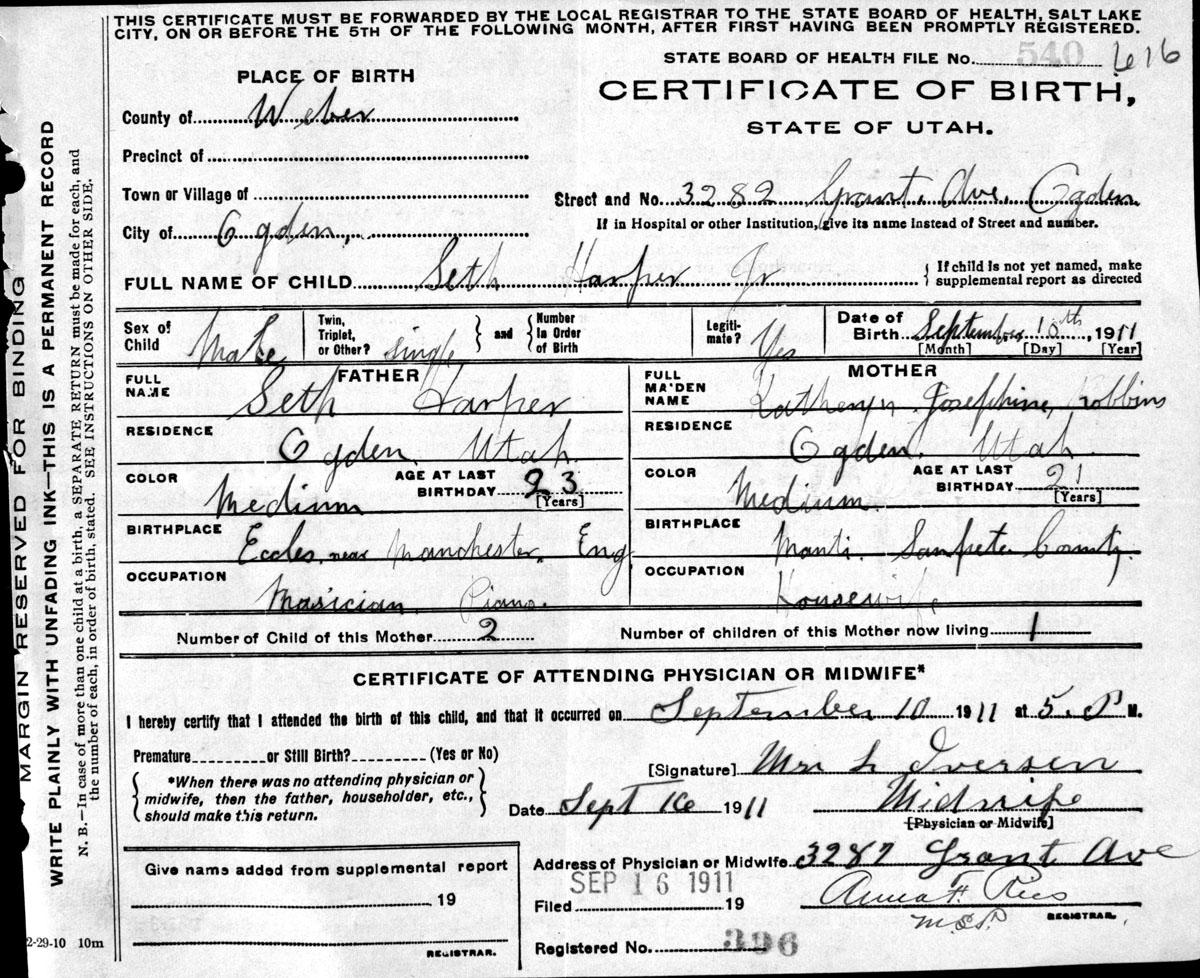 THIS CERTIFICATE MUST BE FORWARDED BY THE LOCAL REGISTRAR TO THE STATE BOARD OF HEALTH, SALT LAKE
CITY, ON OR BEFORE THE 5TH OF THE FOLLOWING MONTH, AFTER FIRST HAVING BEEN PROMPTLY REGISTERED.
STATE BOARD OF HEALTH FILE No. 540 616
PLACE OF BIRTH
CERTIFICATE OF BIRTH,
STATE OF UTAH.
County of Weber
Precinct of
Town or Village of
Street and No. 3282 Grant. Ave. Ogden
City of Ogden,
If in Hospital or other Institution, give its name instead of Street and number.
FULL NAME OF CHILD Seth Harper Jr
If child is not yet named, make
supplemental report as directed
Sex of
Child Male
Twin,
Triplet,
or Other? Single
and
Number
in Order
of Birth
Legiti-
mate? Yes
Date of
Birth September 10th, 1911
[Month] [Day] [Year]
FATHER
FULL
NAME Seth Harper
RESIDENCE
Ogden. Utah.
COLOR
Medium
AGE AT LAST
BIRTHDAY 23
[Years]
BIRTHPLACE
Eccles. near Manchester. Eng.
OCCUPATION
Musician. Piano.
MOTHER
FULL
MAIDEN
NAME Katheryn Josephine Robbins
RESIDENCE
Ogden. Utah.
COLOR
Medium.
AGE AT LAST
BIRTHDAY 21
[Years]
BIRTHPLACE
Manti. Sanpete County.
OCCUPATION
Housewife
Number of Child of this Mother 2
Number of children of this Mother now living 1
CERTIFICATE OF ATTENDING PHYSICIAN OR MIDWIFE*
I hereby certify that I attended the birth of this child, and that it occurred on September 10 1911 at 5. P M.
Premature or Still Birth? (Yes or No)
*When there was no attending physician or
midwife, then the father, householder, etc.,
should make this return.
[Signature] Mrs L Iversen
Date Sept 16 1911
Midwife
[Physician or Midwife]
Give name added from supplemental report
19
REGISTRAR.
Address of Physician or Midwife 3287 Grant Ave
SEP 16 1911
Filed 19
Anna F. Ries
REGISTRAR.
Registered No. 396
MARGIN RESERVED FOR BINDING
WRITE PLAINLY WITH UNFADING INK—THIS IS A PERMANENT RECORD
N. B.—In case of more than one child at a birth, a SEPARATE RETURN must be made for each, and
the number of each, in order of birth, stated. SEE INSTRUCTIONS ON OTHER SIDE.
2-29-10 10m